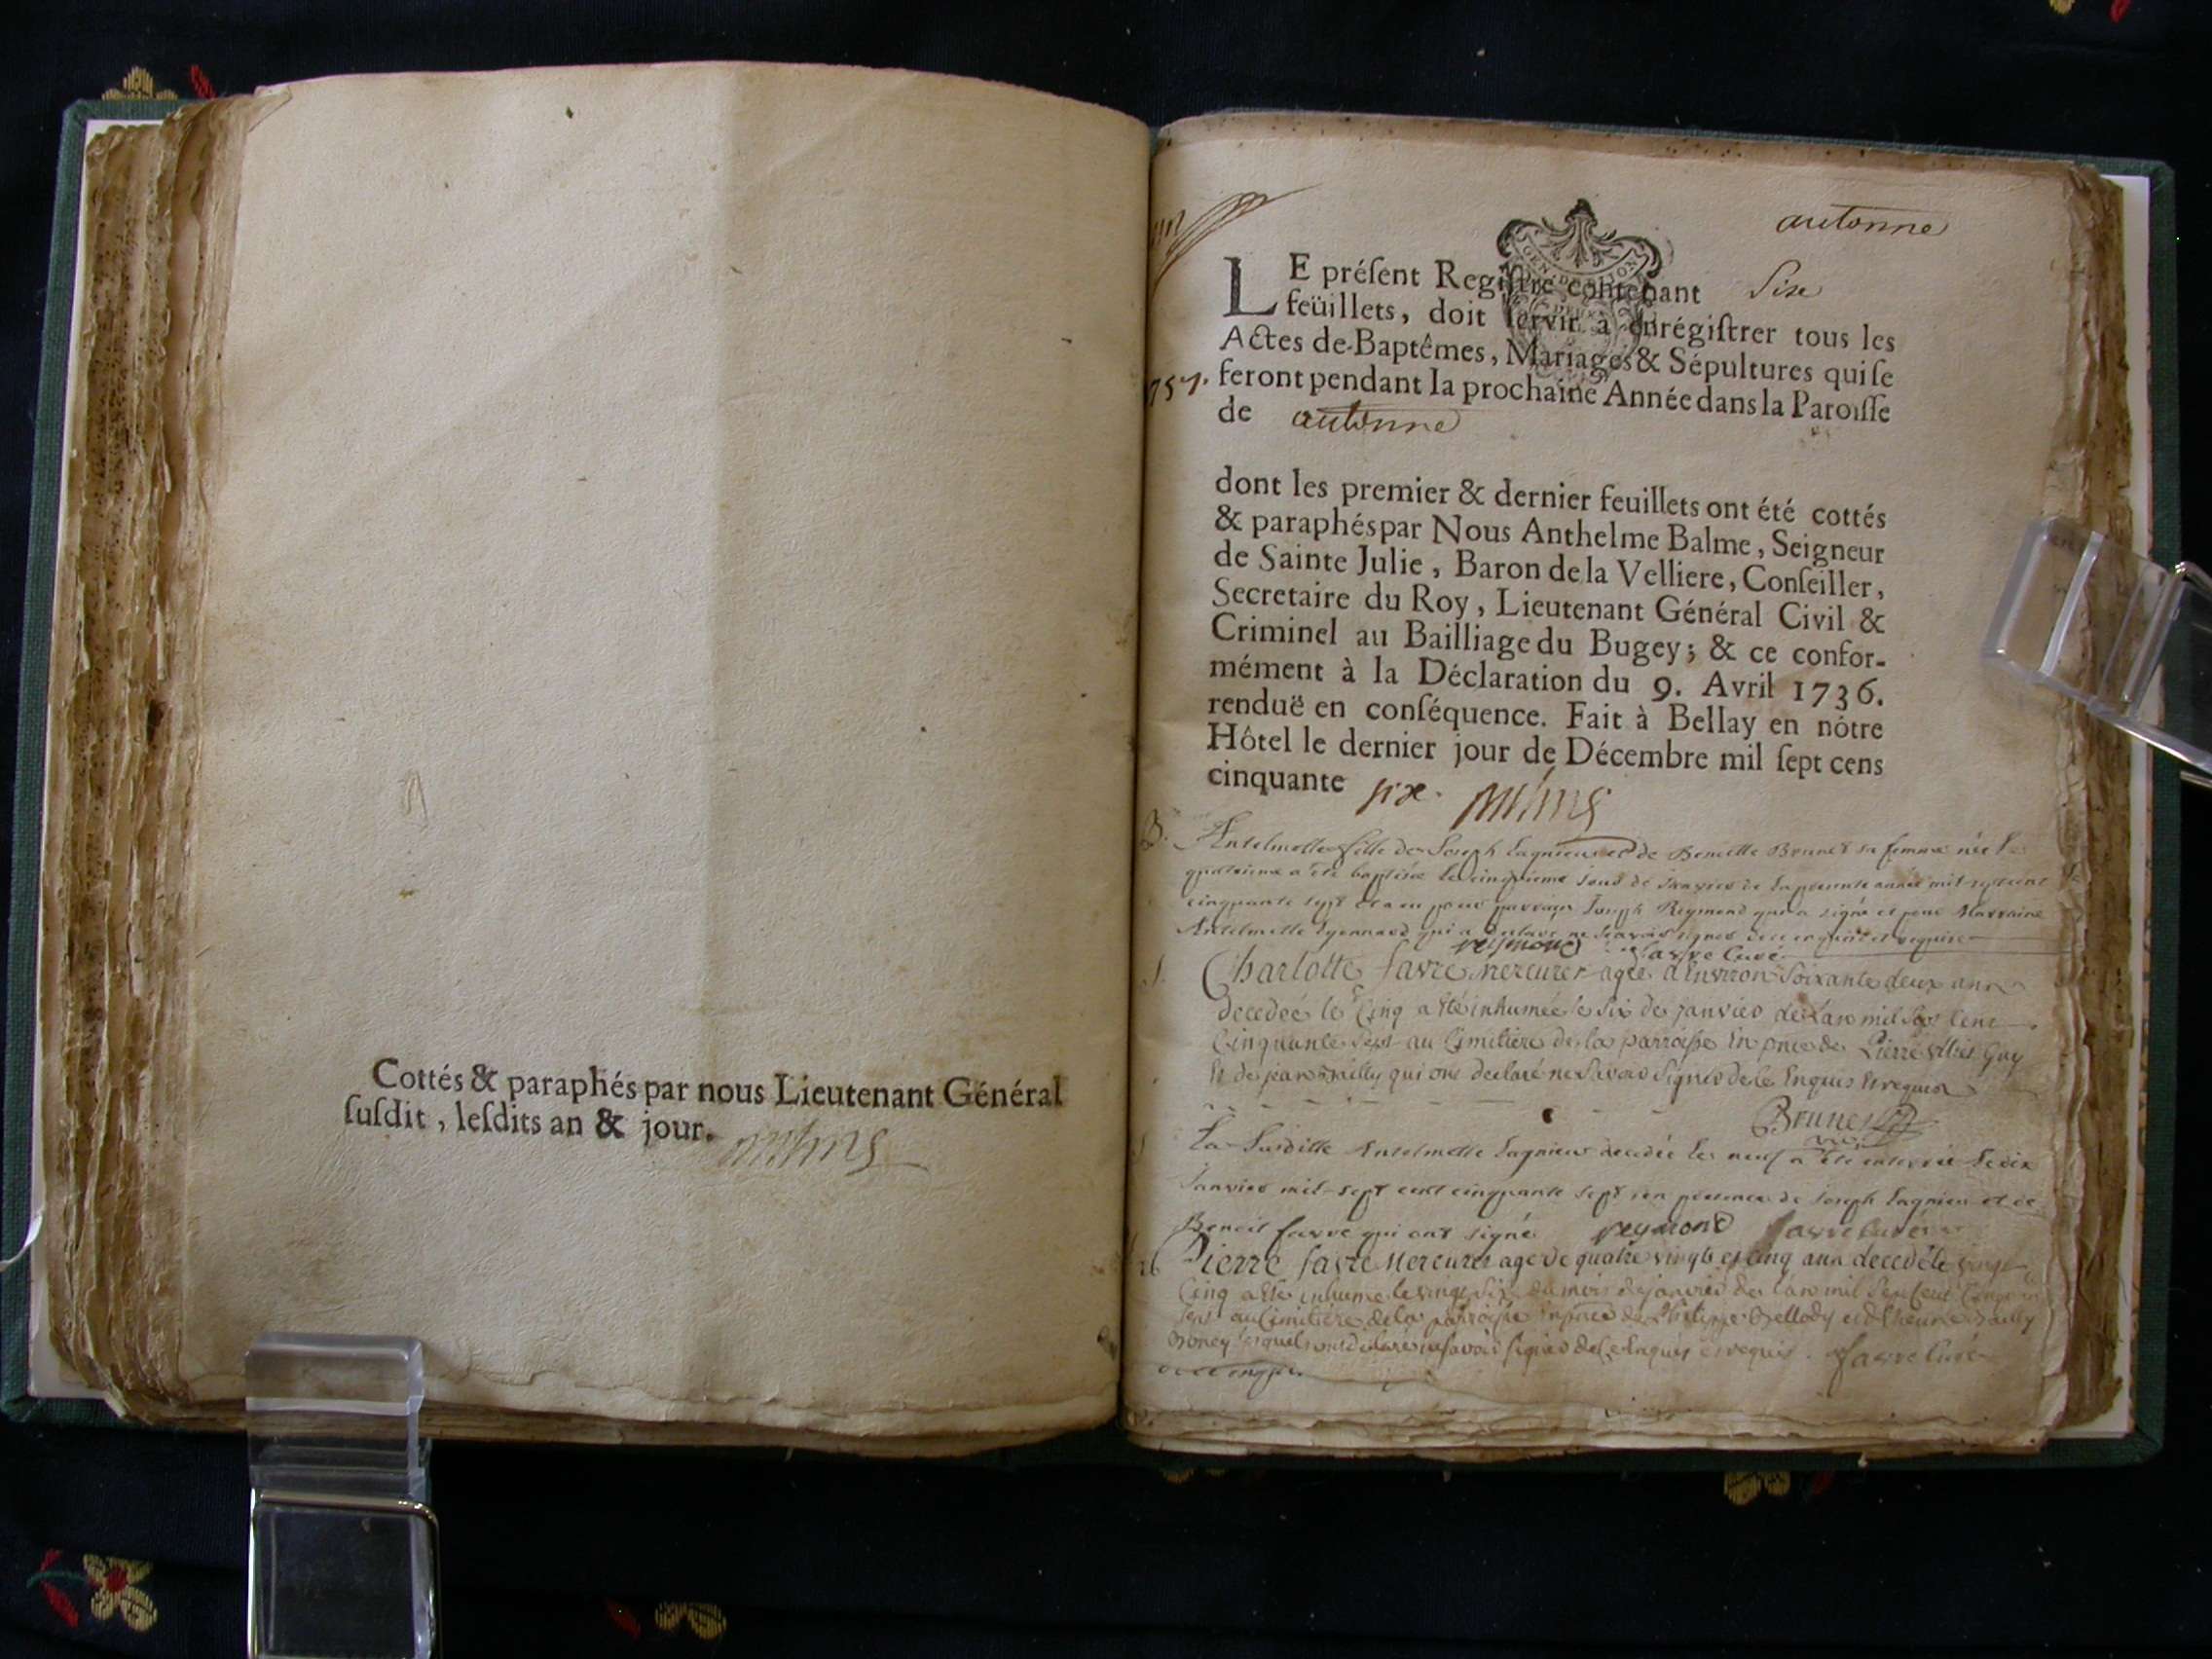 Cottés & paraphés par nous Lieutenant Général
ſuſdit, leſdits an & jour.
autonne
LE préſent Regiſtre contenant Six
feüillets, doit ſervir à enrégiſtrer tous les
Actes de Baptêmes, Mariages & Sépultures qui ſe
757. feront pendant la prochaine Année dans la Paroiſſe
de autonne
dont les premier & dernier feuillets ont été cottés
& paraphés par Nous Anthelme Balme, Seigneur
de Sainte Julie, Baron de la Velliere, Conſeiller,
Secretaire du Roy, Lieutenant Général Civil &
Criminel au Bailliage du Bugey; & ce confor-
mément à la Déclaration du 9. Avril 1736.
renduë en conſéquence. Fait à Bellay en nôtre
Hôtel le dernier jour de Décembre mil ſept cens
cinquante six.
B. Antelmette fille de Joseph Lagnieu et de Benoitte Brunet sa femme née le
quatrieme a été baptisée le cinquieme jour de janvier de la presente année mil sept cent
cinquante sept et a eu pour parrain Joseph Reymond qui a signé et pour Marraine
Antelmette qui a declaré ne sçavoir signer de ce enquise et requise
reymond favre curé
Charlotte favre mercurer agée d'environ soixante deux ans
decedée le cinq a été inhumée le six de janvier de l'an mil sept cent
cinquante sept au cimitiere de la parroisse en pnce de Pierre Guy
et de jean bailly qui ont declaré ne savoir signer de ce enquis et requis
Brunet
La susditte Antelmette Lagnieu decedée le neuf a été enterrée le dix
janvier mil sept cent cinquante sept en presence de joseph Lagnieu et de
Benoit favre qui ont signé reymond favre curé
Pierre favre mercurer agé de quatre vingts et cinq ans decedé le vingt
cinq a été inhumé le vingt six du mois de janvier de l'an mil sept cent cinquante
sept au cimitiere de la parroisse en pnce de et d'Etienne bailly
lesquels ont declaré ne savoir signer de ce enquis et requis. favre curé